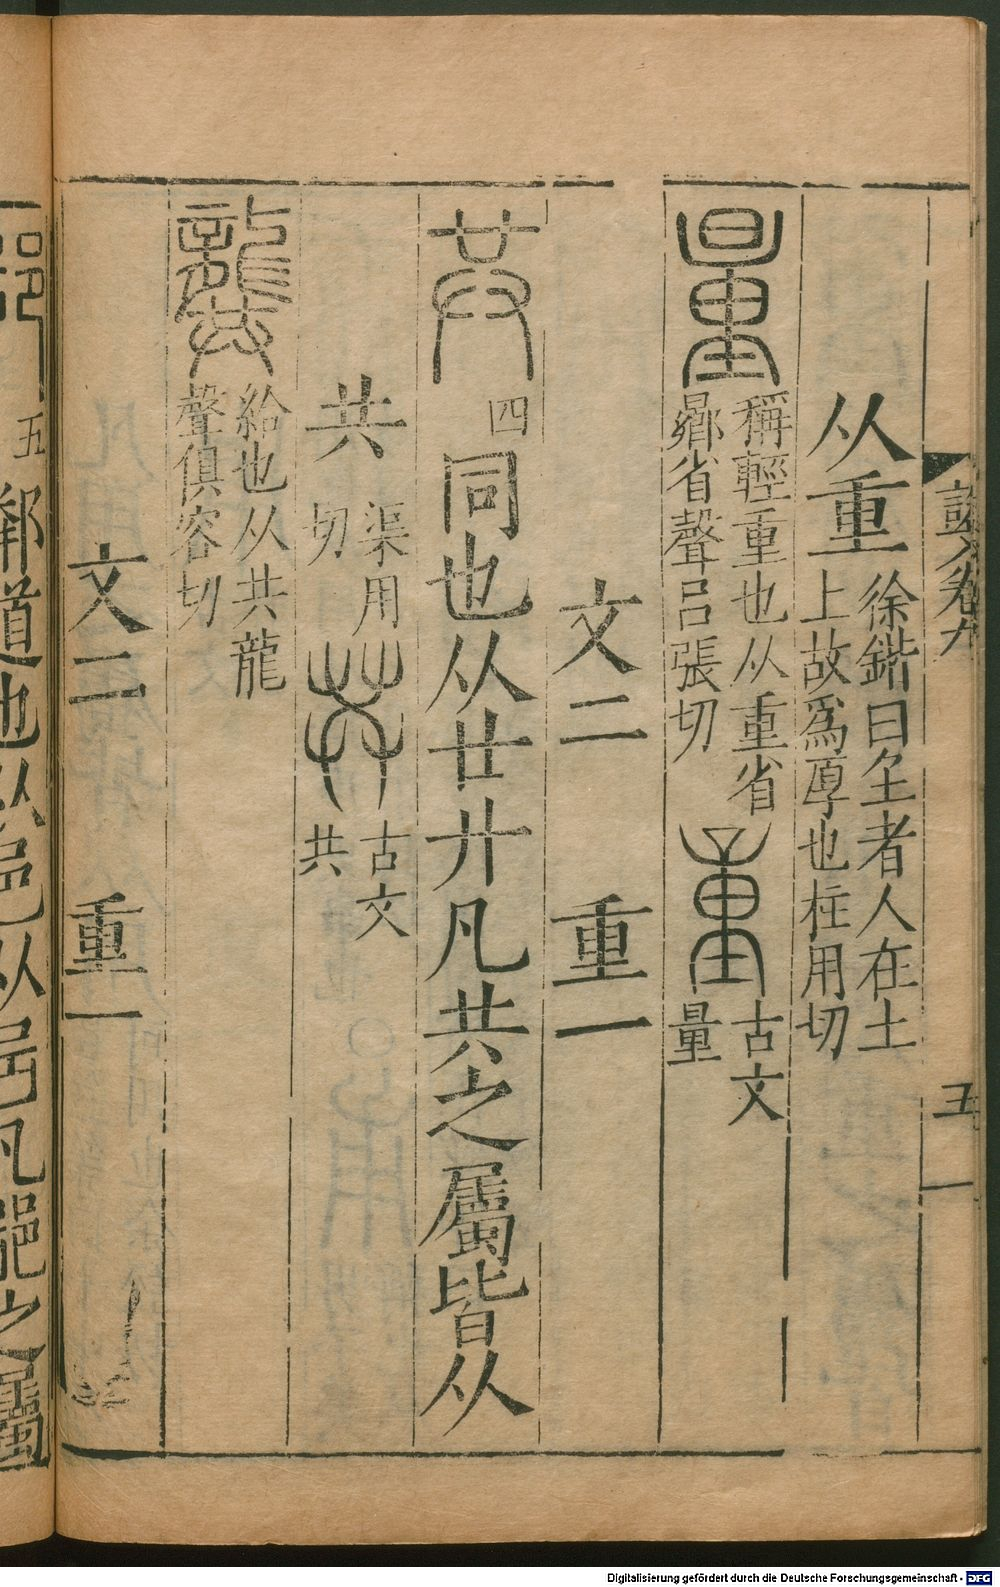 說文卷九
五一
从重
徐鍇曰𡈼者人在土
上故爲厚也柱用切
量
稱輕重也从重省
曏省聲呂張切
古文
量
文二 重一
共
四
同也从廿廾凡共之屬皆从
共
渠用
切
古文
共
龔
給也从共龍
聲俱容切
文二 重一
五
鄰道也从邑从㠯凡𨛜之屬
Digitalisierung gefördert durch die Deutsche Forschungsgemeinschaft - DFG